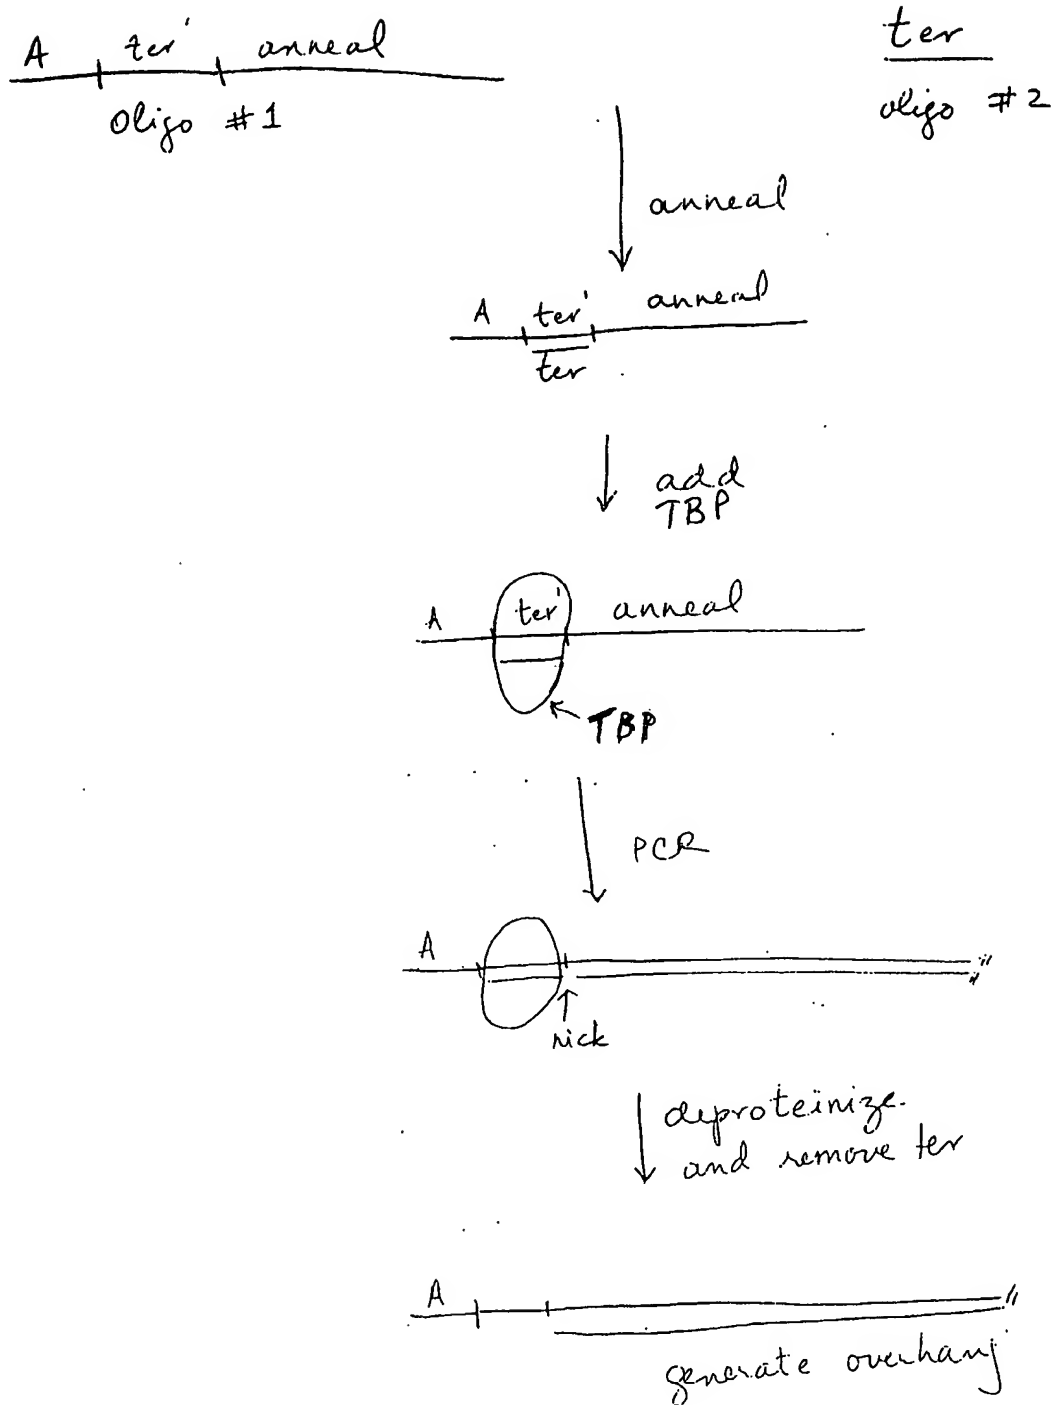 A ter' anneal
Oligo #1
ter
oligo #2
anneal
A ter' anneal
ter
add
TBP
A ter' anneal
TBP
PCR
A
nick
deproteinize
and remove ter
A
generate overhang